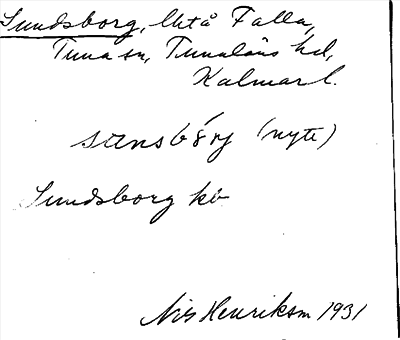 Sundsborg, Utå Falla,
Tuna sn, Tunaläns hd,
Kalmar l.
(nyte)
Sundsborg kb
Nils Henriksm 1931